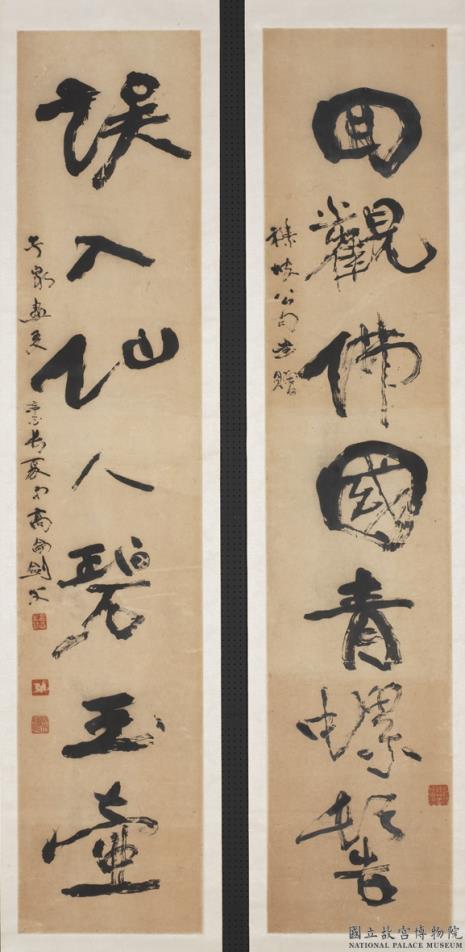 回觀佛國青螺髻
坡公句書贈
誤入仙人碧玉壺
高侖劍父
國立故宮博物院
NATIONAL PALACE MUSEUM